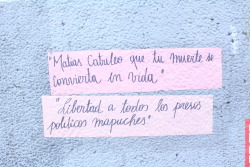 "Matias Catrileo que tu muerte se
convierta en vida"
"Libertad a todos los presos
politicos mapuches"